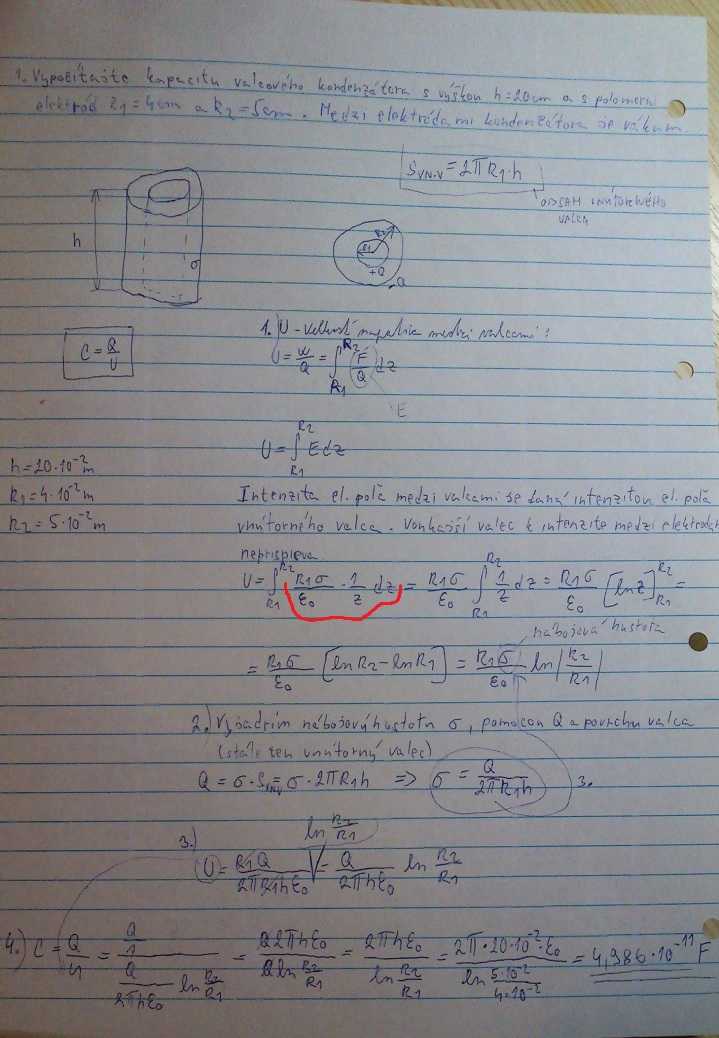 1. Vypočítajte kapacitu valcového kondenzátora s výškou h=20cm a s polomermi
elektród R1=4cm a R2=5cm. Medzi elektródami kondenzátora je vákuum.
S_VN.V = 2πR1·h
OBSAH VNÚTORNÉHO
VALCA
h
σ
R1
R2
+Q
-Q
C = Q/U
1.) U - veľkosť napätia medzi valcami:
U = W/Q = ∫_{R1}^{R2} F/Q dz
E
U = ∫_{R1}^{R2} E dz
h = 20·10^-2 m
R1 = 4·10^-2 m
R2 = 5·10^-2 m
Intenzita el. poľa medzi valcami je daná intenzitou el. poľa
vnútorného valca. Vonkajší valec k intenzite medzi elektródam
neprispieva
U = ∫_{R1}^{R2} R1σ/ε0 · 1/z dz = R1σ/ε0 ∫_{R1}^{R2} 1/z dz = R1σ/ε0 [ln z]_{R1}^{R2} =
nábojová hustota
= R1σ/ε0 [ln R2 - ln R1] = R1σ/ε0 ln |R2/R1|
2.) Vyjadrím nábojovú hustotu σ, pomocou Q a povrchu valca
(stále ten vnútorný valec)
Q = σ·S_VN.V = σ·2πR1h => σ = Q/2πR1h 3.
ln R2/R1
3.)
U = R1Q/2πR1hε0 V = Q/2πhε0 ln R2/R1
4.) C = Q/U = Q/1 / Q/2πhε0 ln R2/R1 = Q2πhε0 / Q ln R2/R1 = 2πhε0 / ln R2/R1 = 2π·20·10^-2·ε0 / ln 5·10^-2/4·10^-2 = 4,986·10^-11 F